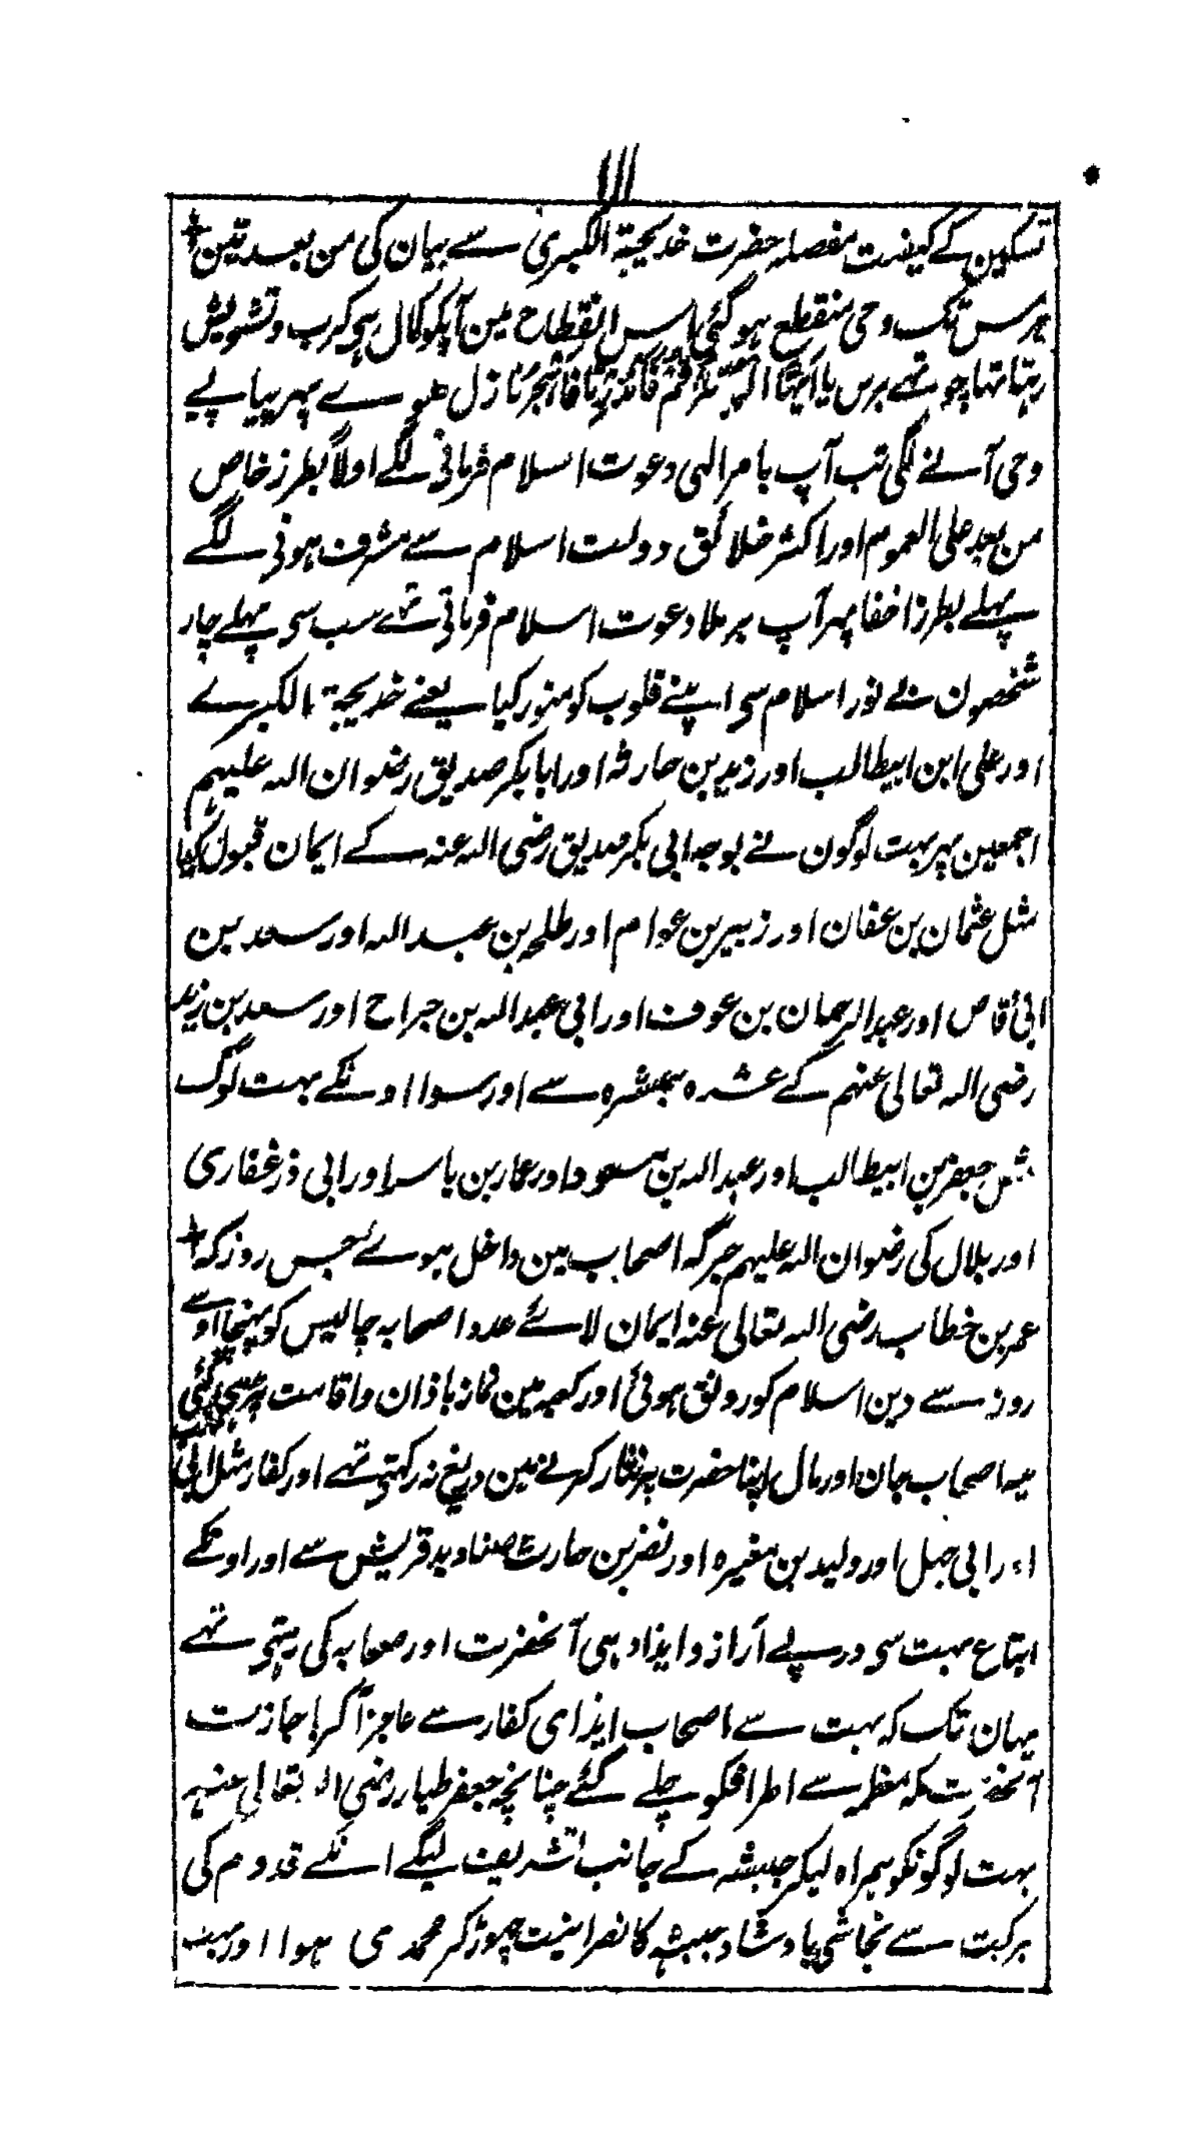 ۱۱۱
تسکین کے کیفیت مفصلہ حضرت خدیجۃ الکبری سے بیان کی من بعد تین
برس تک وحی منقطع ہو گئی پاس انقطاح مین آپکو کمال ہی کرب و تشویش
رہتا تہا چوتھے برس یا ایہا المدثر قم فانذر تا فاہجر نازل ہوے پہر پیاپے
وحی آنے لگی تب آپ بامر الہی دعوت اسلام فرمانی لگے اولاً بطرز خاص
من بعد علی العموم اور اکثر خلائق دولت اسلام سے مشرف ہونی لگے
پہلے بطرز اخفا پہر آپ برملا دعوت اسلام فرماتی تہے سب سی پہلے چار
شخصون نے نور اسلام سی اپنے قلوب کو منور کیا یعنے خدیجۃ الکبرے
اور علی ابن ابیطالب اور زید بن حارثہ اور ابابکر صدیق رضوان اللہ علیہم
اجمعین پہر بہت لوگون نے بوجہ ابی بکر صدیق رضی اللہ عنہ کے ایمان قبول کیا
مثل عثمان بن عفان اور زبیر بن عوام اور طلحہ بن عبد اللہ اور سعد بن
ابی قاص اور عبد الرحمان بن عوف اور ابی عبد اللہ بن جراح اور سعد بن زید
رضی اللہ تعالی عنہم کے عشرہ مبشرہ سے اور سوا اونکے بہت لوگ
مثل جعفر بن ابیطالب اور عبد اللہ بن مسعود اور عمار بن یاسر اور ابی ذر غفاری
اور بلال کی رضوان اللہ علیہم جرگہ اصحاب مین داخل ہوے جس روز کہ
عمر بن خطاب رضی اللہ تعالی عنہ ایمان لائے عدد اصحابہ چالیس کو پہنچا اوسے
روز سے دین اسلام کو رونق ہوئی اور کعبہ مین نماز باذان و اقامت پڑھی گئی
سہ اصحاب جان اور مال اپنا حضرت پر نثار کرنے مین دریغ نہ رکہتی تہے اور کفار مثل ابی لہب
اور ابی جہل اور ولید بن مغیرہ اور نضر بن حارث صنادید قریش سے اور اونکے
اتباع بہت سی درپے آزار و ایذا دہی آنحضرت اور صحابہ کی رہتی تہے
یہان تک کہ بہت سے اصحاب ایذای کفار سے عاجز آکر باجازت
آنحضرت مکہ معظمہ سے اطرافکو چلے گئے چنانچہ جعفر طیار رضی اللہ تعالی عنہ
بہت لوگونکو ہمراہ لیکر حبشہ کے جانب تشریف لیگے انکے قدوم کی
برکت سے نجاشی پادشاہ حبشہ کا نصرانیت چہوڑکر محمدی ہوا اور بہت